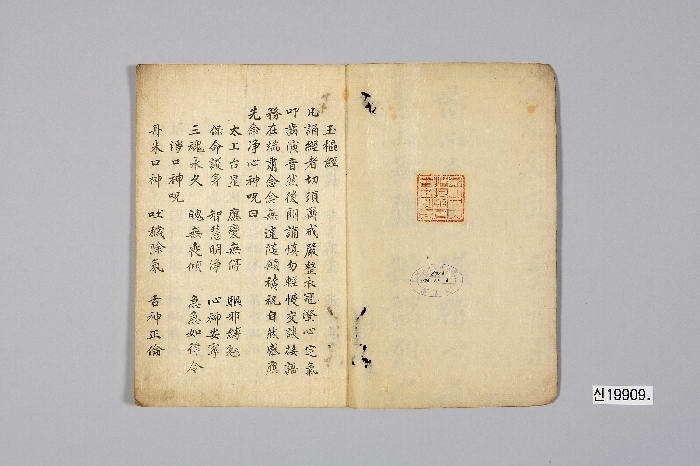 玉樞經
凡誦經者切須齋戒嚴整衣冠澄心定氣
叩齒演音然後朗誦愼勿輕慢交談接語
務在端肅念念無違隨願禱祝自然感應
先念淨心神呪曰
太上台星 應變無停 驅邪縛魅
保命護身 智慧明淨 心神安寧
三魂永久 魄無喪傾 急急如律令
淨口神呪
丹朱口神 吐穢除氛 舌神正倫
신19909.